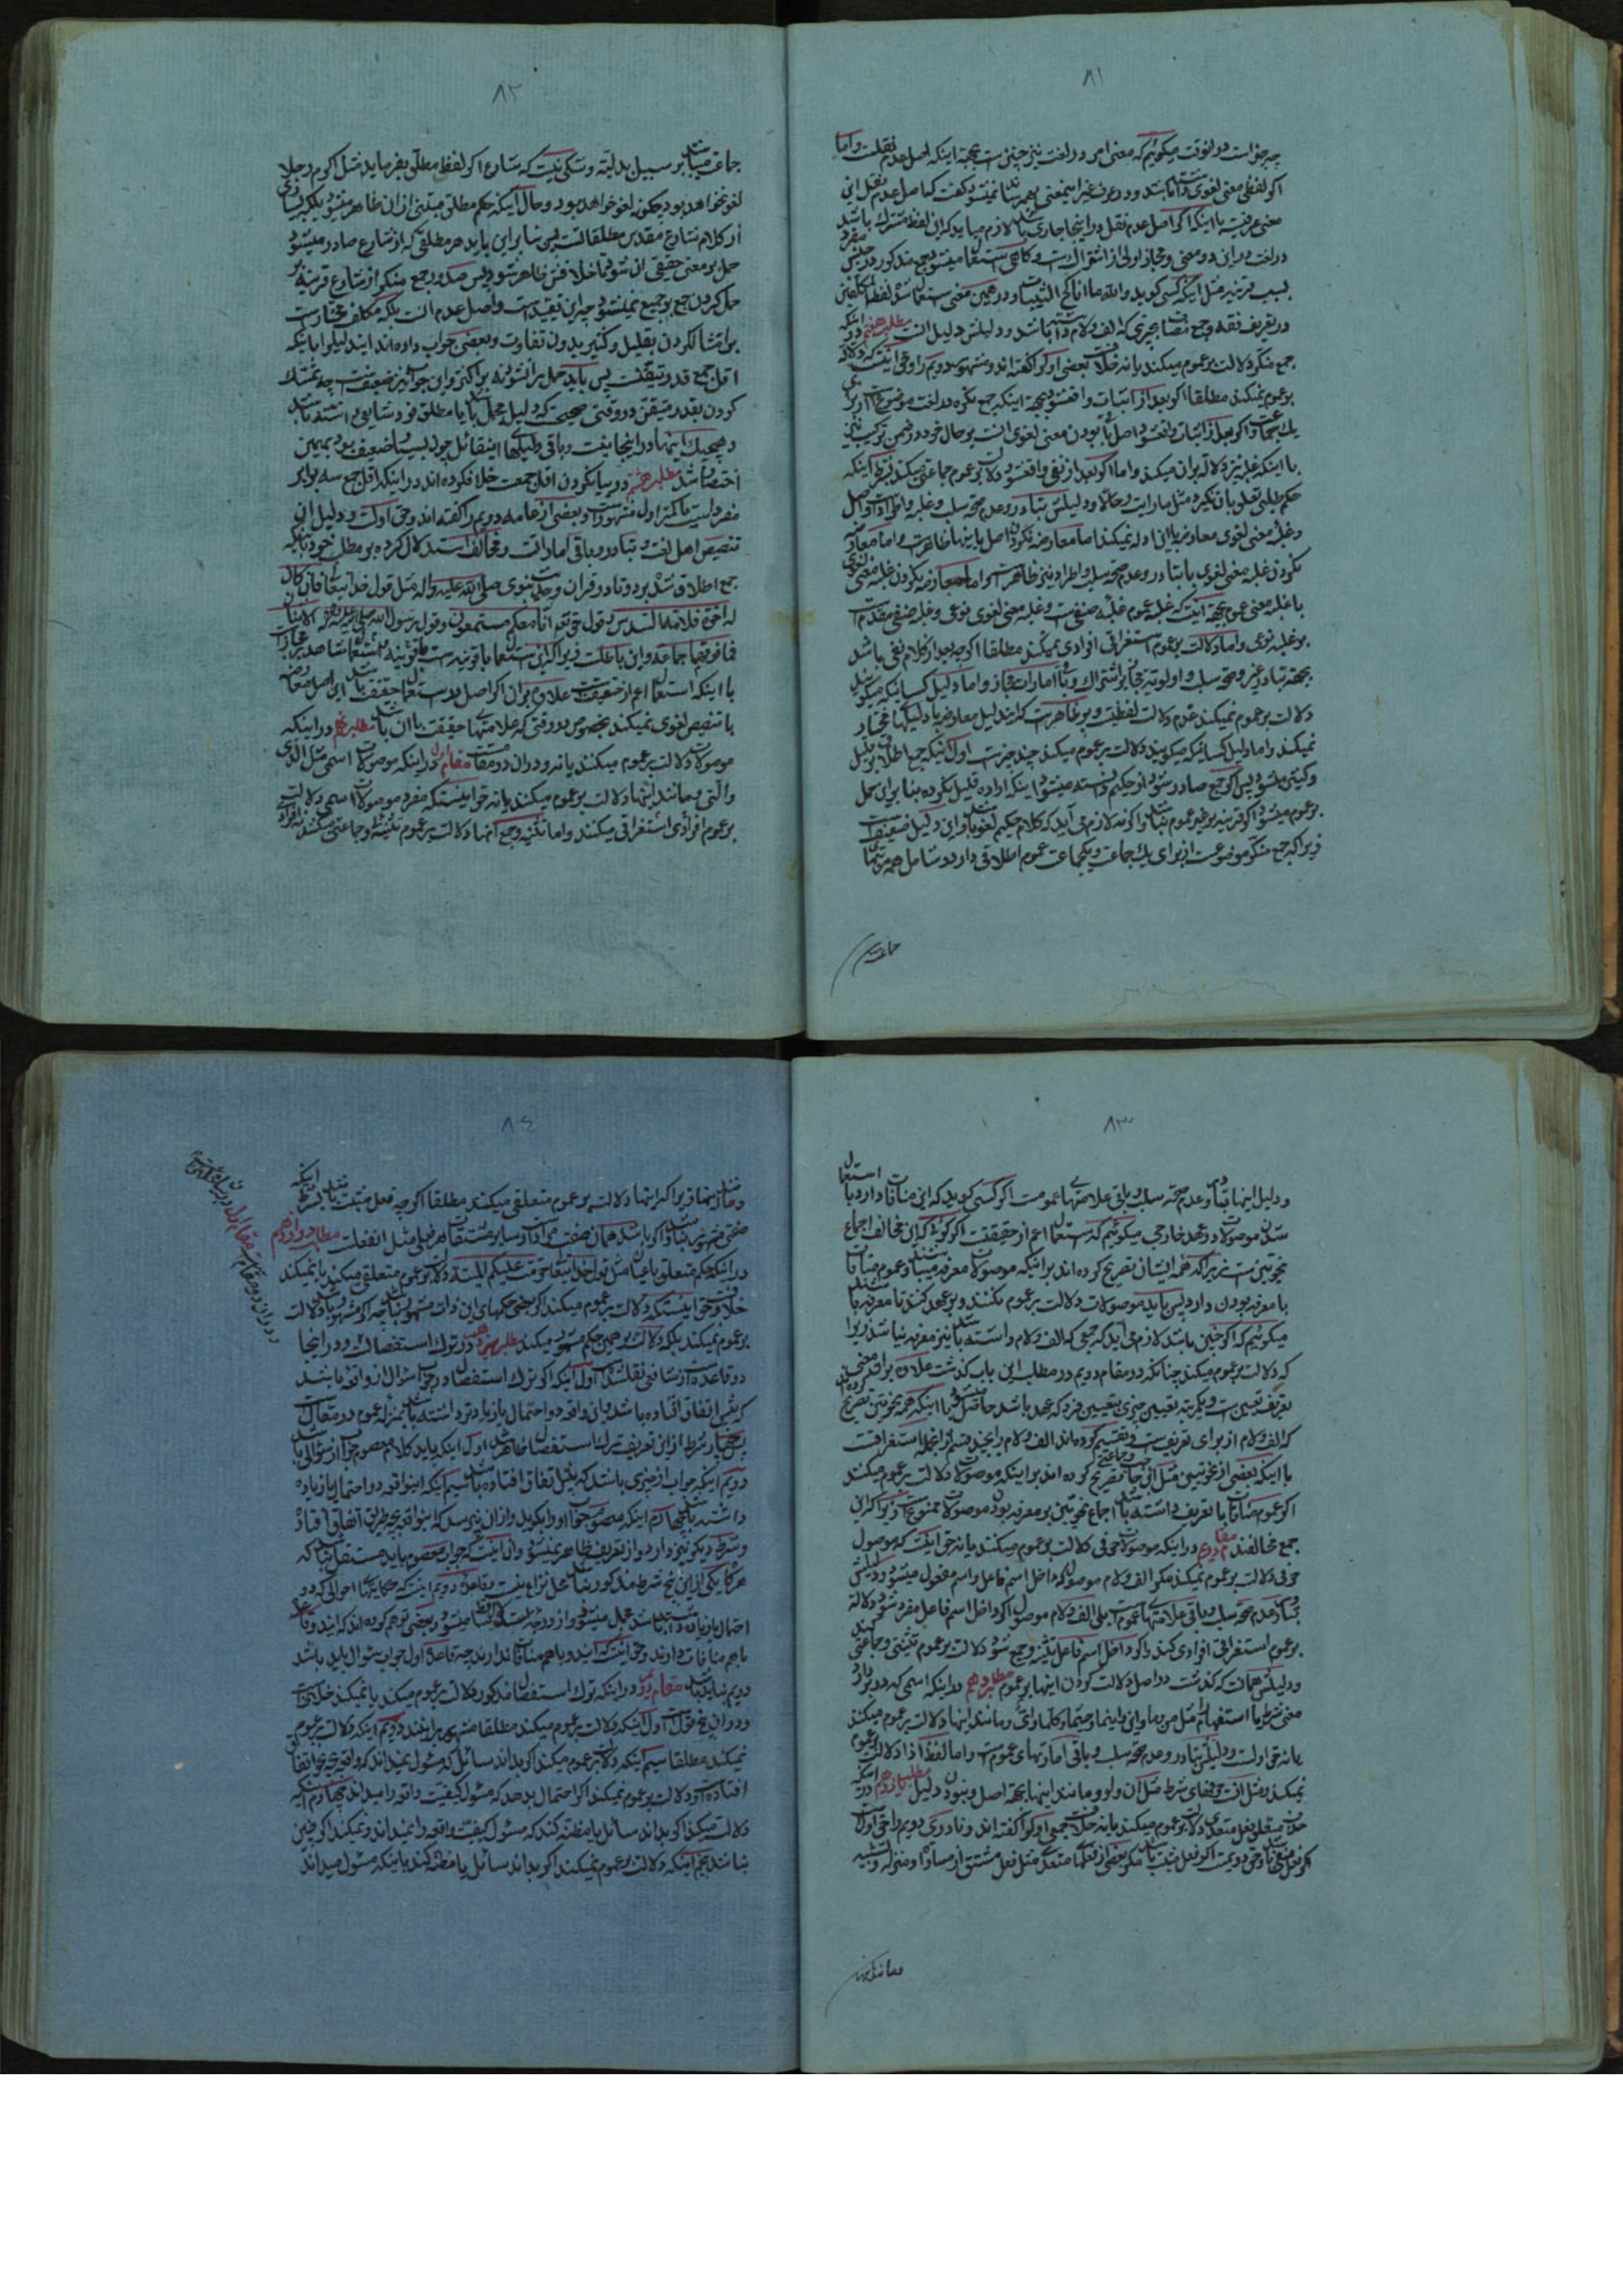 ٨١
چه جواست در آنوقت میکوئیم که معنی امر در لغت نیز چنین است بجهة اینکه اصل عدم نقلست واما
اکر لفظی معنی لغوی داشته باشد و در عرف غیر اینمعنی بفهمند نمیشود کفت که اصل عدم نقل این
معنی عرفیست با اینکه اکر اصل عدم نقل در اینجا جاری باشد لازم میاید که این لفظ مشترک باشد
در لغت در این دو معنی و مجاز اولی از اشتراک است و کاهی استعمال میشود جمع مذکور در جنس
بسبب قرینه مثل اینکه کسی کوید والله ما انا کح الثیبات و در همین معنی استعمال شده لفظ
جمع منکر دلالت بر عموم میکند یا نه خلاف بعضی
بر عموم نمیکند مطلقا اکر بعد از اثبات واقع شود بجهة اینکه جمع نکره در لغت موضوع است از برای
با اینکه غلبه نیز دلالة بران میکند واما اکر بعد از نفی واقع شود دلالت بر عموم جماعتی میکند بشرط اینکه
وغلبه معنی لغوی معارضه با این ادله نمیکند اما معارضه نکردن اصل با اینها ظاهرست واما معارضه
نکردن غلبه معنی لغوی با تبادر وعدم صحة سلب واطراد نیز ظاهرست واما معارضه نکردن غلبه معنی لغوی
با غلبه معنی عموم بجهة اینست که غلبه عموم غلبه صنفیست وغلبه معنی لغوی نوعی وغلبه صنفی مقدم است
بر غلبه نوعی واما دلالت بر عموم استغراقی افرادی نمیکند مطلقا اکر چه بعد از کلام نفی باشد
بجهة تبادر غیر وصحة سلب و اولویة مجاز بر اشتراک وباقی امارات مجاز واما دلیل کسانیکه میکویند
دلالت بر عموم نمیکند عدم دلالت لفظیست وپر ظاهرست که این دلیل معارضه با دلیلهای مختار
نمیکند واما دلیل کسانیکه میکویند دلالت بر عموم میکند چند چیزست اول اینکه جمع اطلاق بر قلیل
وکثیر میشود پس اکر جمع صادر شود از حکیم دانسته میشود اینکه اراده قلیل نکرده بنا برین حمل
بر عموم میشود اکر قرینه بر غیر عموم نباشد والا لازم می آید که کلام حکیم لغو باشد واین دلیل ضعیفست
زیرا که جمع منکر موضوعست از برای یک جماعت ویکجماعت عموم اطلاقی دارد و شامل همه مرتبهای
جماعت
٨٢
جماعت میباشد بر سبیل بدلیة وشکی نیست که شارع اکر لفظ مطلق بفرماید مثل اکرم رجلا
لغو نخواهد بود چکونه لغو خواهد بود و حال آنکه حکم مطلق مبتنی از آن ظاهر میشود بلکه بسیاری
از کلام شارع مقدس مطلقاتست پس بنا برین باید هر مطلقی که از شارع صادر میشود
حمل بر معنی حقیقی ان شود تا خلافش ظاهر شود پس صدور جمع منکر از شارع قرینه بر
حمل کردن جمع بر جمیع نمیشود چه این تقیید است واصل عدم انست بلکه مکلف مختارست
بر امتثال کردن بقلیل وکثیر بدون تفاوت وبعضی جواب داده اند ایندلیل را باینکه
اقل جمع قدر متیقنست پس باید حمل بر ان شود نه بر اکثر واین جواب نیز ضعیفست چه تمسک
کردن بقدر متیقن در وقتی صحیحست که دلیل مجمل باشد یا مطلق فرد شایعی داشته باشد
وهیچیک اینها در اینجا نیست وباقی دلیلهای اینقائل چون بسیار ضعیف بود بهمین
اختصار شد مطلب هشتم در بیان کردن اقل جمعست خلاف کرده اند در اینکه اقل جمع سه برابر
مفردیست یا کمتر اول مشهورست وبعضی از عامه دویم را کفته اند وحق اولست ودلیل ان
تنصیص اهل لغت و تبادر وباقی اماراتست ومخالف استدلال کرده بر مطلب خود باینکه
جمع اطلاق شده بر دو تا در قران وحدیث نبوی صلی الله علیه واله مثل قول خدایتعالی فان کان
له اخوة فلامه السدس وقول حق تعالی انا معکم مستمعون وقول رسول الله صلی الله علیه واله الاثنان
فما فوقهما جماعة واین باطلست زیرا که این استعمال با قرینه است
با اینکه استعمال اعم از حقیقتست علاوه بران اکر اصل در استعمال حقیقت باشد این اصل معارضه
با تنصیص لغوی نمیکند بخصوص در وقتی که علامتهای حقیقت با ان باشد مطلب نهم در اینکه
موصولات دلالت بر عموم میکنند یا نه ودران دو مقامست مقام اول در اینکه موصولات اسمی مثل الذی
والتی ومانند اینها دلالت بر عموم میکنند یا نه حق اینستکه مفرد موصولات اسمی دلالت
بر عموم افرادی استغراقی میکنند واما تثنیه وجمع انها دلالت بر عموم تثنیه وجماعتی میکنند نه افرادی
٨٣
ودلیل اینها تبادر وعدم صحة سلب وباقی علامتهای عمومست اکر کسی کوید که این منافات دارد با استعمال
شدن موصولات در عهد خارجی میکوئیم که استعمال اعم از حقیقتست اکر کوئی که این مخالف اجماع
نحویینست زیرا که همه ایشان تصریح کرده اند براینکه موصولات معرفه میباشند وعموم منافات
با معرفه بودن دارد پس باید موصولات دلالت بر عموم نکنند وبر عهد کنند تا معرفه باشند
میکوئیم که اکر چنین باشد لازم می آید که جمعی که الف ولام داشته باشد نیز معرفه نباشد زیرا
که دلالت بر عموم میکند چنانکه در مقام دویم در مطلب این باب کذشت علاوه بران معنی
که الف ولام از برای تعریفست وتقسیم کرده اند الف ولام را بچند قسم از انجمله استغراقست
با اینکه بعضی از نحویین مثل ابن حاجب وجماعتی تصریح کرده اند براینکه موصولات دلالت بر عموم میکنند
اکر عموم منافات با تعریف داشته باشد اجماع نحویین بر معرفه بودن موصولات ممنوعست زیرا که این
جمع مخالفند مقام دویم در اینکه موصولات حرفی دلالت بر عموم میکنند یا نه حق اینست که موصول
حرفی دلالت بر عموم نمیکند مکر الف ولام موصول که داخل اسم فاعل واسم مفعول میشود ودلیلش
تبادر وعدم صحة سلب وباقی علامتهای عمومست بلی الف ولام موصول اکر داخل اسم فاعل مفرد شود دلالة
بر عموم استغراقی افرادی کند واکر داخل اسم فاعل تثنیه وجمع شود دلالت بر عموم تثنیتی وجماعتی کند
ودلیلش همانست که کذشت در اصل دلالت کردن اینها بر عموم مطلب دهم در اینکه اسمی که در بر دارد
معنی شرط یا استفهام را مثل من وما واین واینما وحیثما وکلما وای ومانند اینها دلالت بر عموم میکند
یا نه حق اولست ودلیلش تبادر وعدم صحة سلب وباقی امارتهای عمومست واما لفظ اذا دلالت بر عموم
نمیکند ومثل انست حرفهای شرط مثل ان ولو ومانند اینها بجهة اصل ونبودن دلیل مطلب یازدهم در اینکه
ومانند اینها
٨٤
ومانند اینها زیرا که اینها دلالت بر عموم متعلقی میکنند مطلقا اکر چه فعل مثبت باشند بشرط اینکه
مطلب دوازدهم
در اینکه حکم متعلق باعیان مثل قول خدایتعالی حرمت علیکم المیتة دلالت بر عموم متعلقی میکند یا نمیکند
خلافست وحق اینستکه دلالت بر عموم میکند اکر بعضی حکمهای این ذات مشهور نباشد چه اکر مشهور باشد دلالت
بر عموم نمیکند بلکه دلالت بر همین حکم مشهور میکند مطلب سیزدهم در ترک استفصالست ودر اینجا
دو قاعده از شافعی نقلشده اول اینکه اکر ترک استفصال در جواب سؤال از واقعه باشد
که یقینی اتفاق افتاده باشد وان واقعه دو احتمال یا زیادتر داشته باشد بمنزله عموم در مقالست
پس چهار شرط از این تعریف ترک استفصال ظاهر شد اول اینکه باید کلام معصوم جواب از سؤالی باشد
دویم اینکه جواب از چیزی باشد که یقینی اتفاق افتاده باشد سیم اینکه اینواقعه دو احتمال یا زیاده
داشته باشد چهارم اینکه معصوم جواب اورا بکوید واز ان نپرسد که اینواقعه بچه طریق اتفاق افتاده
وشرط دیکر نیز دارد واز تعریف ظاهر نمیشود وان اینست که جواب معصوم باید مستقل نباشد که
هرکاه یکی از این پنج شرط مذکور نباشد محل نزاع نیست وقاعده دویم اینست که حکایتهای احوالی که دو
باهم منافات دارند وحق اینست که ایندو باهم منافات ندارند چه قاعده اول جواب سؤال باید باشد
دویم نباید باشد مقام دویم در اینکه ترک استفصال مذکور دلالت بر عموم میکند یا نمیکند خلافست
ودران پنج قولست اول اینکه دلالت بر عموم میکند مطلقا مشهور براینند دویم اینکه دلالت بر عموم
نمیکند مطلقا سیم اینکه دلالت بر عموم میکند اکر بداند سائل که مسئول نمیداند که واقعه بچه نحو اتفاق
افتاده ودلالت بر عموم نمیکند اکر احتمال بدهد که مسئول کیفیت واقعه را میداند چهارم اینکه
دلالت میکند اکر بداند سائل یا مظنه کند که مسئول کیفیت واقعه را نمیداند ونمیکند اکر چنین
نباشد پنجم اینکه دلالت بر عموم نمیکند اکر بداند سائل یا مظنه کند باینکه مسئول میداند